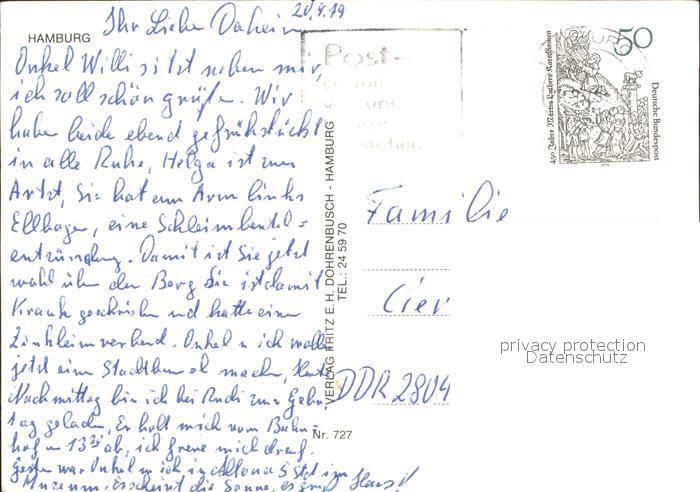 20.4.79
HAMBURG
Ihr Lieben Daheim
Onkel Willi sitzt neben mir,
ich soll schön grüßen. Wir
haben beide ebend gefrühstückt
in alle Ruhe, Helga ist zum
Artzt, Sie hat am Arm links
Ellbogen, eine Schleimbeutel=
entzündung. Damit ist Sie jetzt
wohl über den Berg Sie ist damit
Krank geschrieben und hatte einen
Zinkleimverband. Onkel u ich wollen
jetzt ein Stadtbummel machen, Heute
Nachmittag bin ich bei Rudi zum Gebu
tag geladen, Er holt mich vom Bahn=
hof um 13 ab, ich freue mich drauf.
Gestern war Onkel u ich in Altona 5 Std im
Museum. Es scheint die Sonne, es grüßt Hans
Post-
50
450 Jahre Martin Luthers Katechismen
Deutsche Bundespost
1979
VERLAG FRITZ E.H. DOHRENBUSCH - HAMBURG
TEL.: 24 59 70
Familie
DDR 2804
Nr. 727
privacy protection
Datenschutz